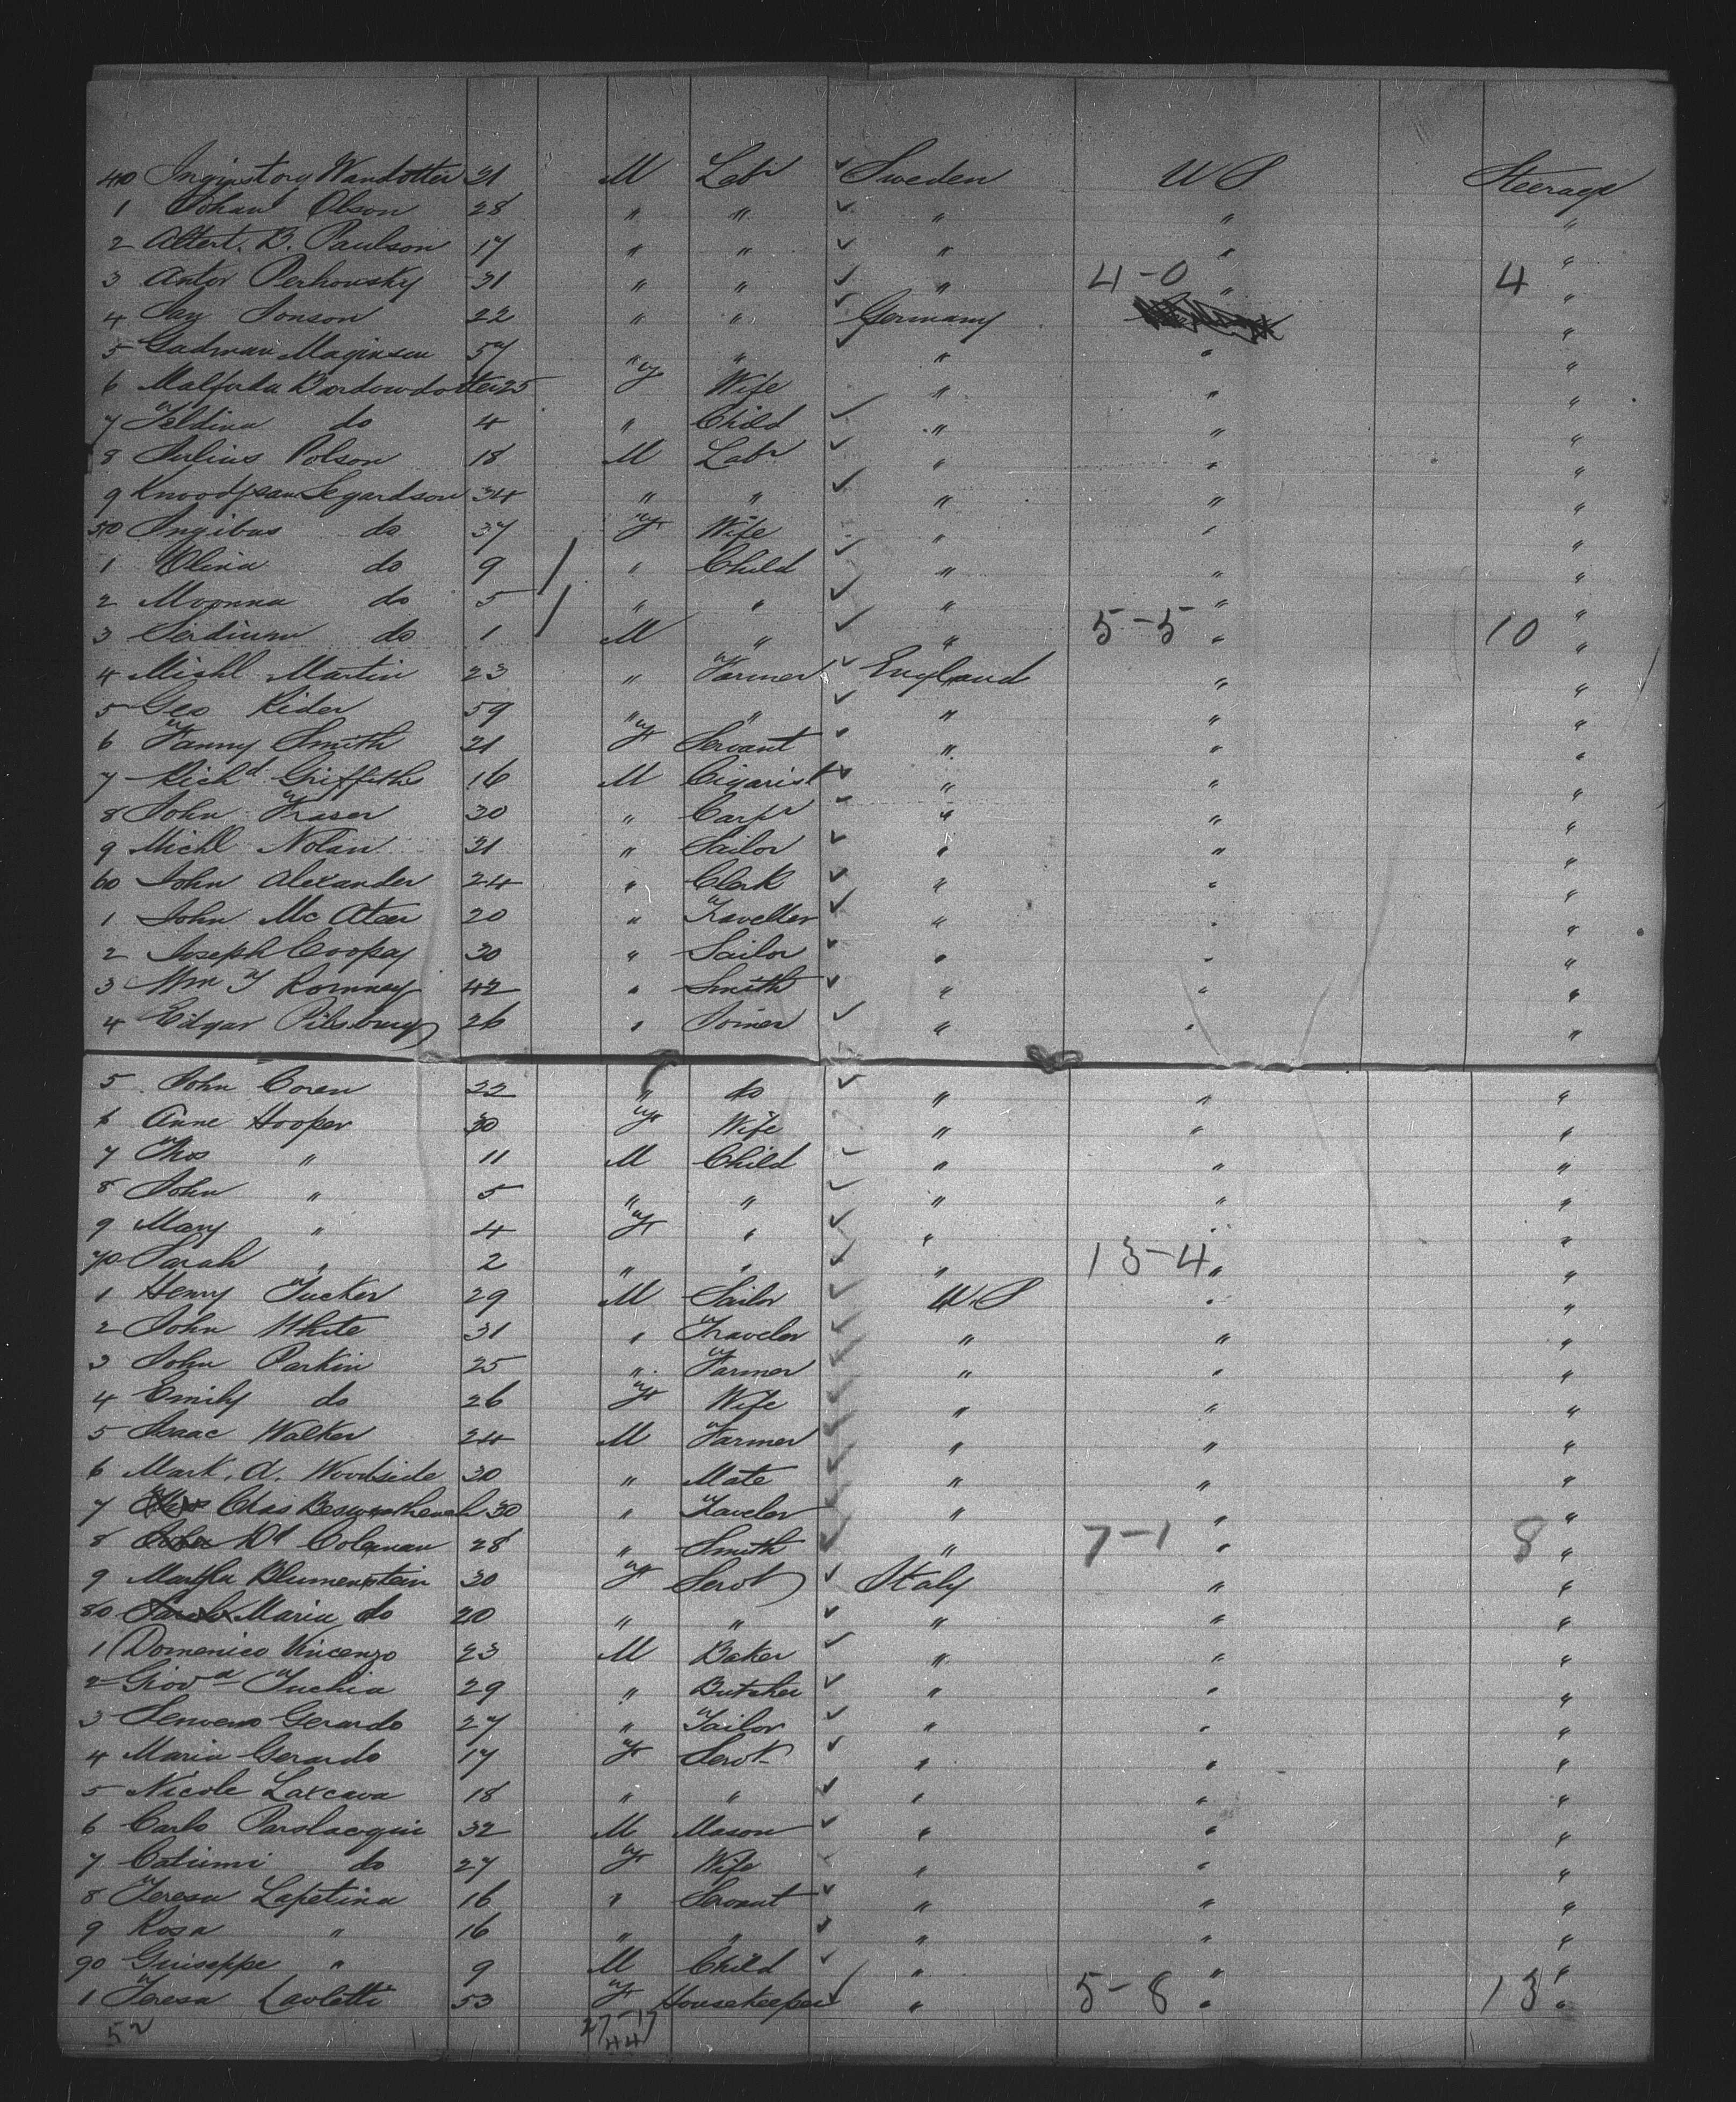 40 Inginstory Wandotter 21 M Labr ✓ Sweden U S Steerage
1 Johan Olson 28 " " ✓ " " "
2 Albert. B. Paulson 17 " " ✓ " " "
3 Antor Perkowsky 31 " " ✓ " 4-0 " 4 "
4 Jay Jonson 22 " " ✓ Germany "
5 Gadman Maginsen 57 " " ✓ " " "
6 Malfrida Bordowdotter 25 F Wife " " "
7 Feldina do 4 " Child ✓ " " "
8 Julius Polson 18 M Labr ✓ " " "
9 Segardson 34 " " ✓ " " "
50 Ingibus do 37 F Wife " " "
1 Olina do 9 / " Child ✓ " " "
2 Moonna do 5 / " " ✓ " " "
3 do 1 M " ✓ " 5-5 " 10 "
4 Michl Martin 23 " Farmer ✓ England " "
5 Geo Rider 59 " " ✓ " " "
6 Fanny Smith 21 F Servant ✓ " " "
7 Richd Griffiths 16 M Cigarist ✓ " " "
8 John Fraser 30 " Carpr ✓ " " "
9 Michl Nolan 31 " Sailor ✓ " " "
60 John Alexander 24 " Clerk ✓ " " "
1 John Mc Ateer 20 " Traveller ✓ " " "
2 Joseph Coopay 30 " Sailor ✓ " " "
3 Wm J Romney 42 " Smith ✓ " " "
4 Edgar Pilsbury 26 " Joiner ✓ " " "
5 John Coren 22 " do ✓ " " "
6 Anne Hooper 30 F Wife " " "
7 Thos " 11 M Child ✓ " " "
8 John " 5 " " ✓ " " "
9 Mary " 4 F " ✓ " " "
70 Sarah " 2 " " ✓ " 13-4 " "
1 Henry Tucker 29 M Sailor ✓ U S " "
2 John White 31 " Traveler ✓ " " "
3 John Parkin 25 " Farmer ✓ " " "
4 Emily do 26 F Wife ✓ " " "
5 Isaac Walker 24 M Farmer ✓ " " "
6 Mark. A. Woodside 30 " Mate ✓ " " "
7 Chas 30 " Traveler ✓ " " "
8 Wd Coleman 28 " Smith ✓ " 7-1 " 8 "
9 Martha Blumenstein 30 F Servt ✓ Italy " "
80 Maria do 20 " " ✓ " " "
1 Domenico Vincenzo 23 M Baker ✓ " " "
2 Giova Tuchia 29 " Butcher ✓ " " "
3 Gerardo 27 " Tailor ✓ " " "
4 Maria Gerardo 17 F Servt ✓ " " "
5 Nicole Laxcava 18 " " ✓ " " "
6 Carlo Parslacquie 32 M Mason ✓ " " "
7 Catiumi do 27 F Wife " " "
8 Teresa Lapetina 16 " Servant ✓ " " "
9 Rosa " 16 " " ✓ " " "
90 Guiseppe " 9 M Child ✓ " " "
1 Teresa Cavletti 53 F Housekeeper ✓ " 5-8 " 13 "
52 27-17
44